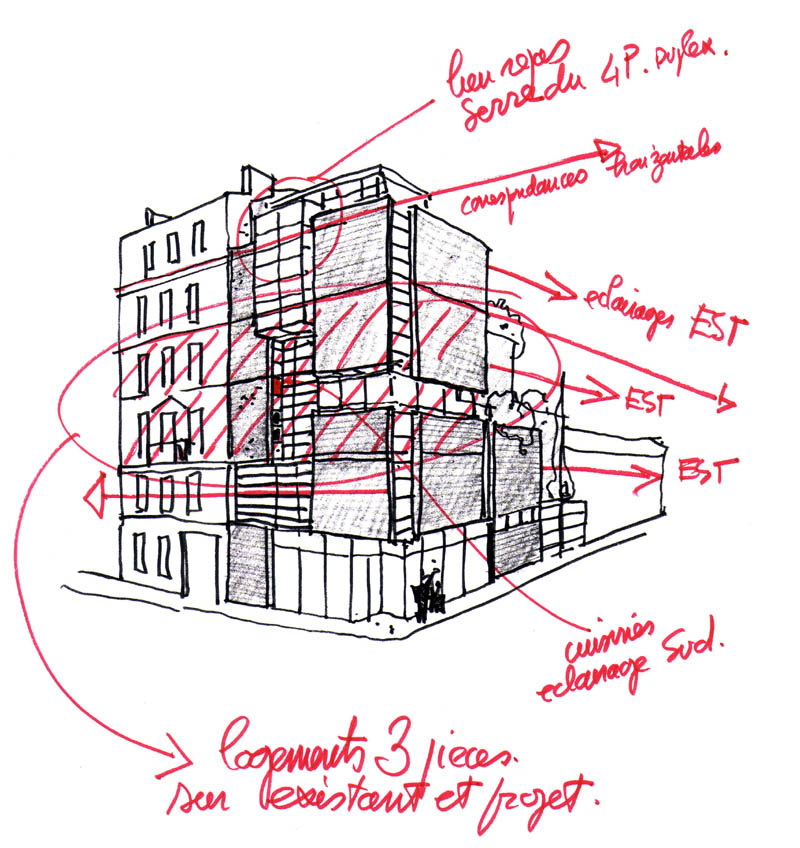 lieu repas
Serre du 4P. Duplex.
correspondances horizontales
eclairages EST
EST
EST
cuisines
eclairage Sud.
logements 3 pieces.
sur l'existant et projet.